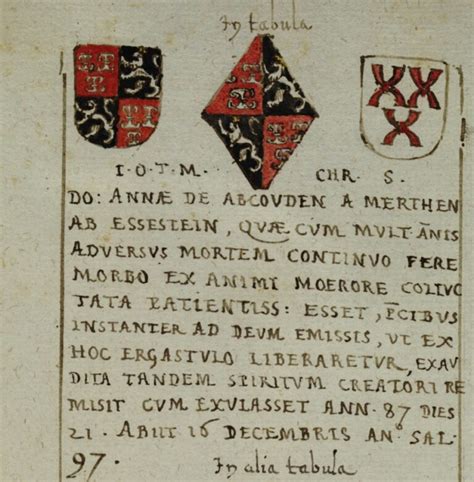 In tabula
I. O. T. M. CHR. S.
DO: ANNÆ DE ABCOUDEN A MERTHEN
AB ESSESTEIN, QUÆ CUM MULT ĀNIS
ADVERSUS MORTEM CONTINUO FERE
MORBO EX ANIMI MOERORE COLLUC
TATA PATIENTISS: ESSET, P̄CIBUS
INSTANTER AD DEUM EMISSIS, UT EX
HOC ERGASTULO LIBERARETUR, EXAU
DITA TANDEM SPIRITUM CREATORI RE
MISIT CUM EXULASSET ANN. 87 DIES
21. ABIIT 16 DECEMBRIS AN° SAL.
97.
In alia tabula